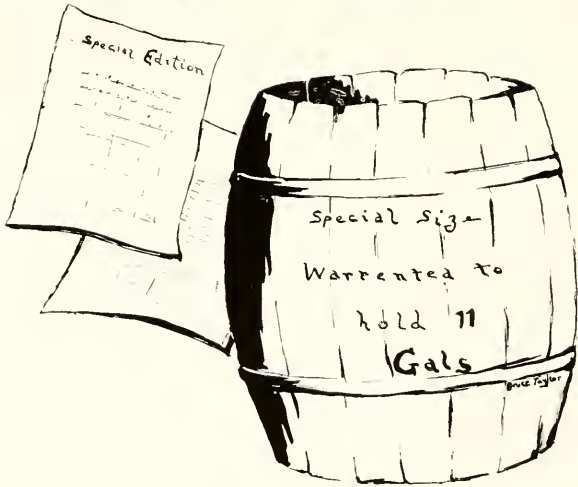 Special Edition
Special Size
Warrented to
hold 11
Gals
Bruce Taylor